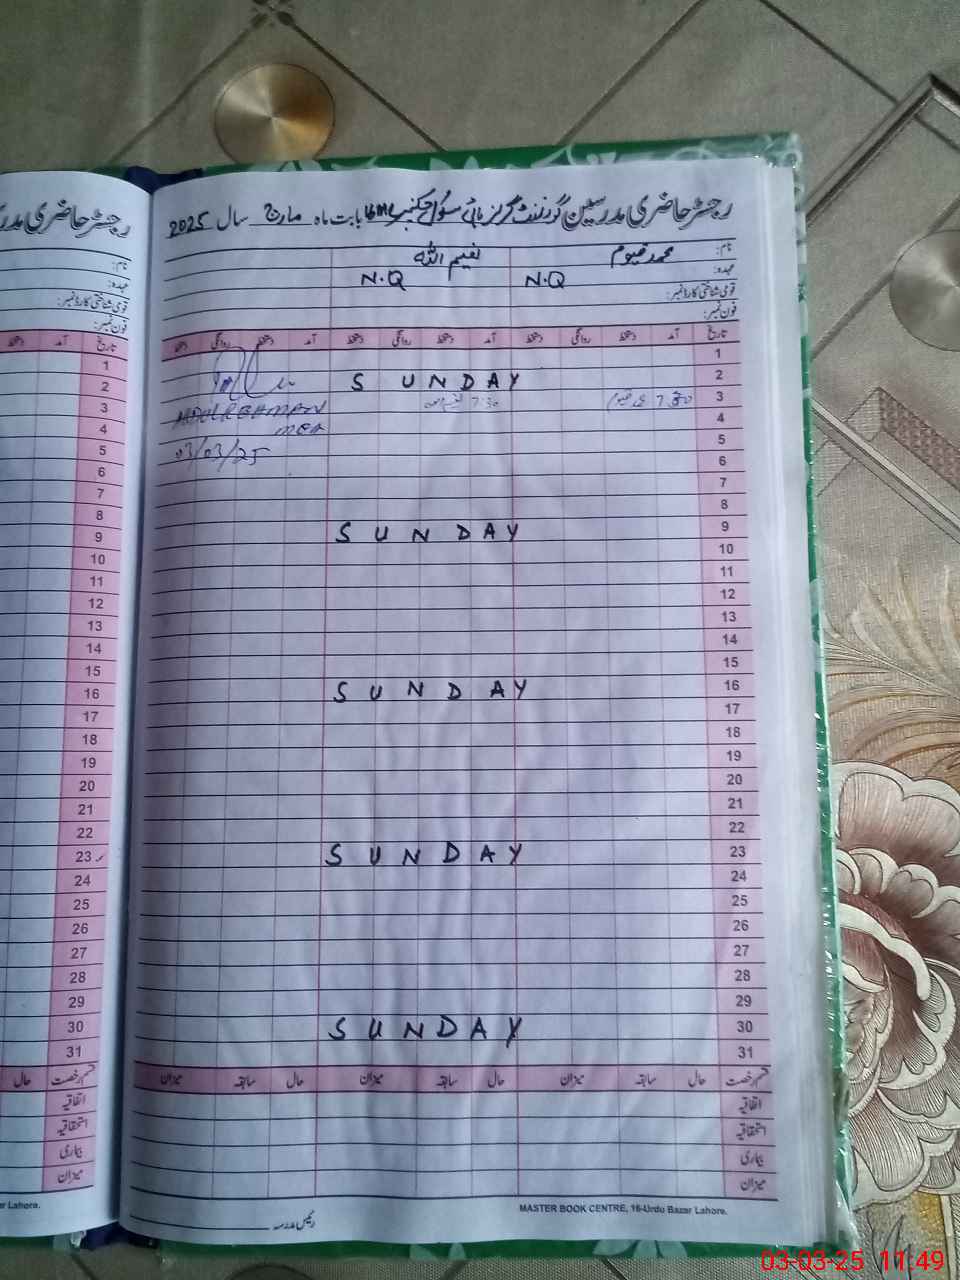 رجسٹر حاضری مدرسین گورنمنٹ گرلز ہائی سکول چکنمبر 16ML بابت ماہ مارچ سال 2025
نام: محمد قیوم نعیم اللہ
عہدہ: N.Q N.Q
قومی شناختی کارڈ نمبر:
فون نمبر:
تاریخ آمد دستخط روانگی دستخط آمد دستخط روانگی دستخط آمد دستخط روانگی دستخط
1
2 SUNDAY
3 7:30 قیوم 7:30 ABDUL REHMAN
4 MEA
5 03/03/25
6
7
8
9 SUNDAY
10
11
12
13
14
15
16 SUNDAY
17
18
19
20
21
22
23 SUNDAY
24
25
26
27
28
29
30 SUNDAY
31
قسم رخصت حال سابقہ میزان حال سابقہ میزان حال سابقہ میزان
اتفاقیہ
استحقاقیہ
بیماری
میزان
رئیس مدرسہ
MASTER BOOK CENTRE, 16-Urdu Bazar Lahore.
رجسٹر حاضری
نام:
عہدہ:
قومی شناختی کارڈ نمبر:
فون نمبر:
تاریخ آمد دستخط
1
2
3
4
5
6
7
8
9
10
11
12
13
14
15
16
17
18
19
20
21
22
23
24
25
26
27
28
29
30
31
قسم رخصت حال
اتفاقیہ
استحقاقیہ
بیماری
میزان
ar Lahore.
03-03-25 11:49